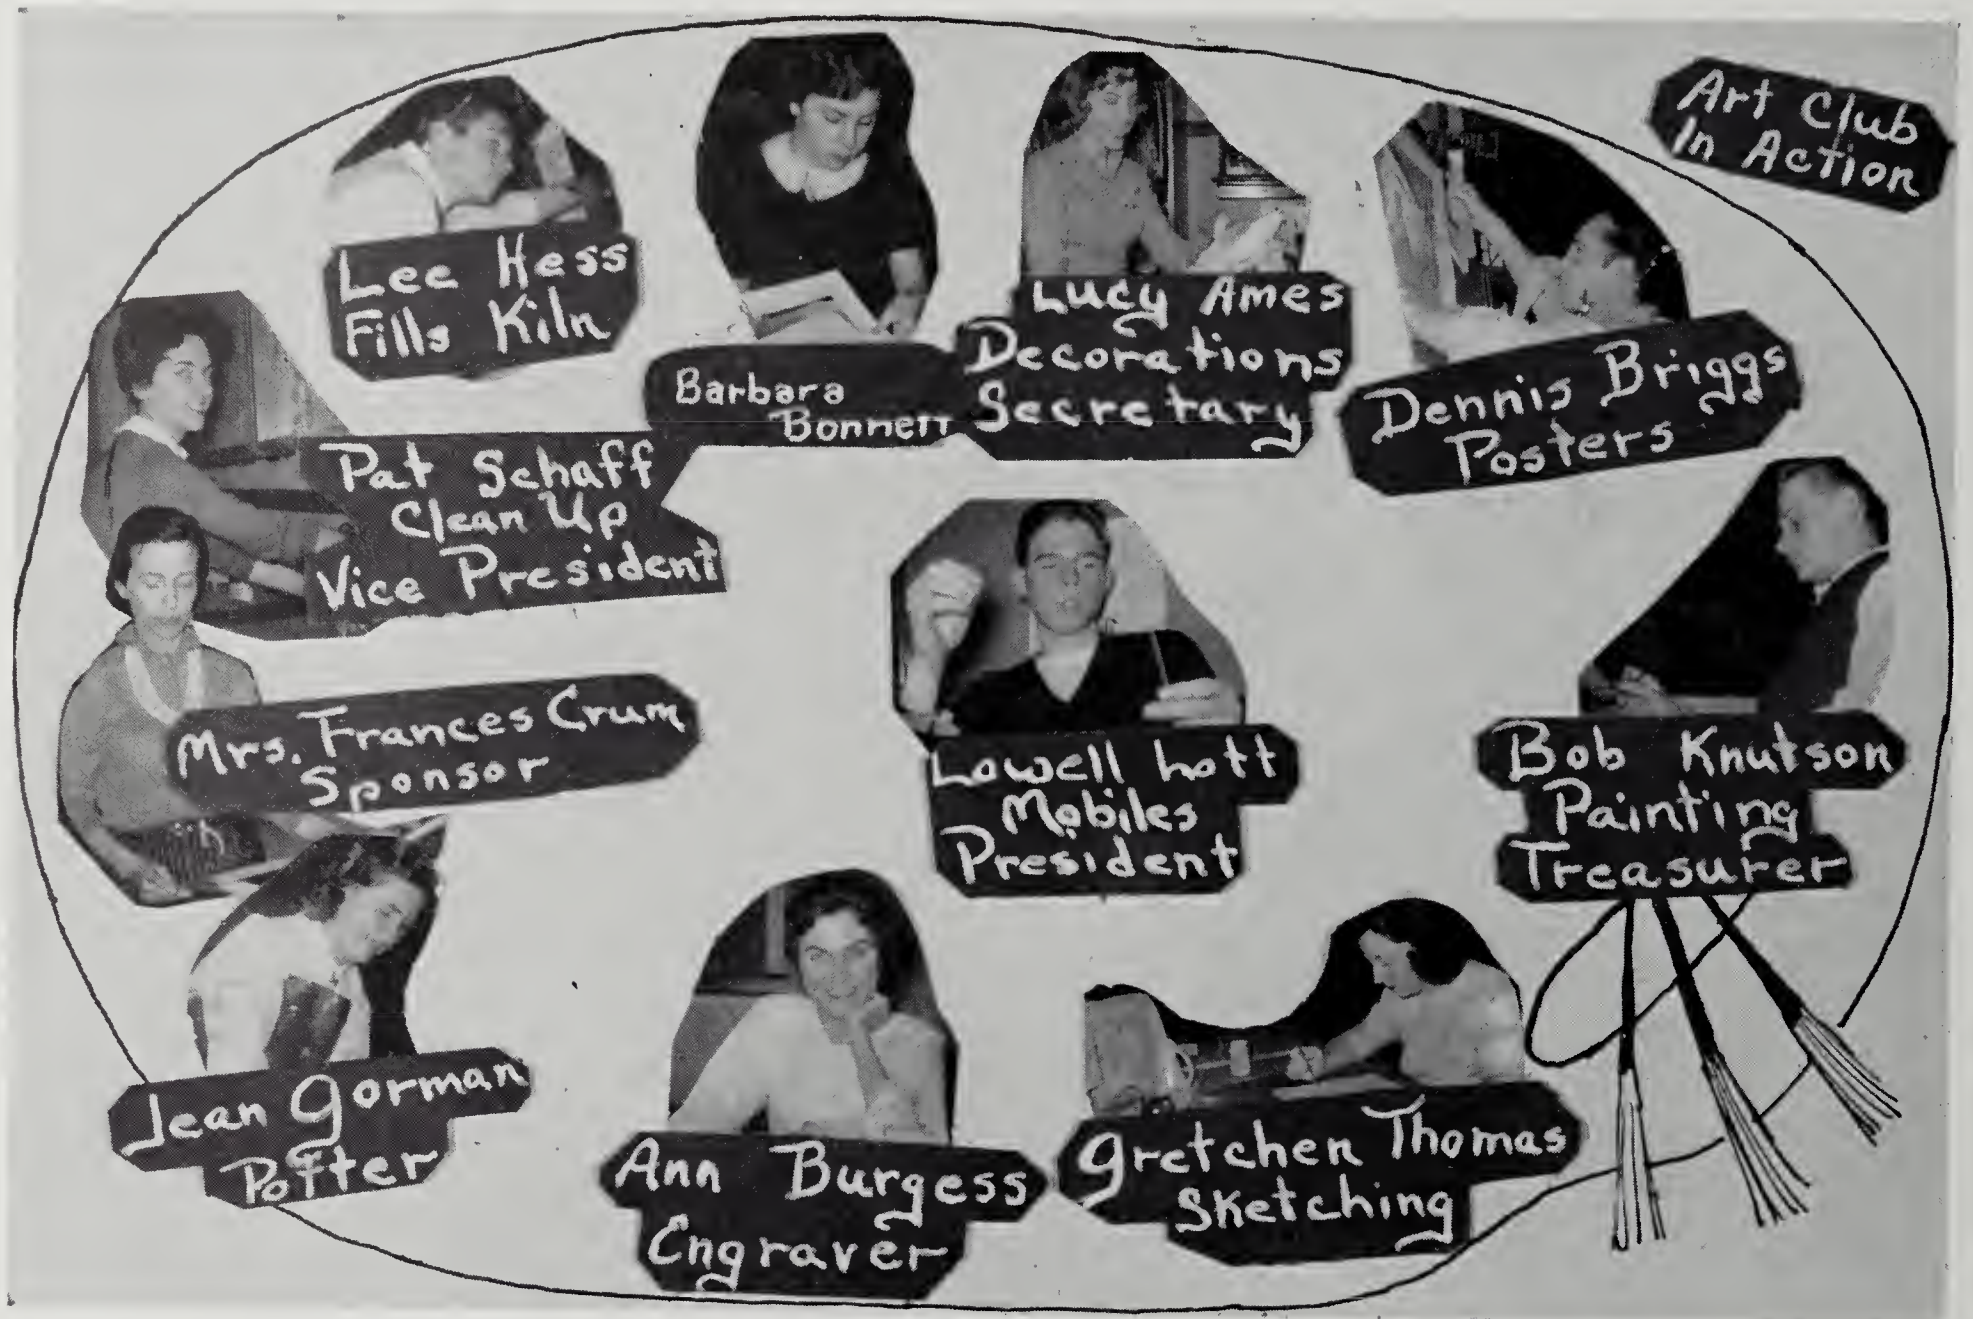 Art Club
In Action
Lee Hess
Fills Kiln
Barbara
Bonnett
Lucy Ames
Decorations
Secretary
Dennis Briggs
Posters
Pat Schaff
Clean Up
Vice President
Mrs. Frances Crum
Sponsor
Lowell Lott
Mobiles
President
Bob Knutson
Painting
Treasurer
Jean Gorman
Potter
Ann Burgess
Engraver
Gretchen Thomas
Sketching